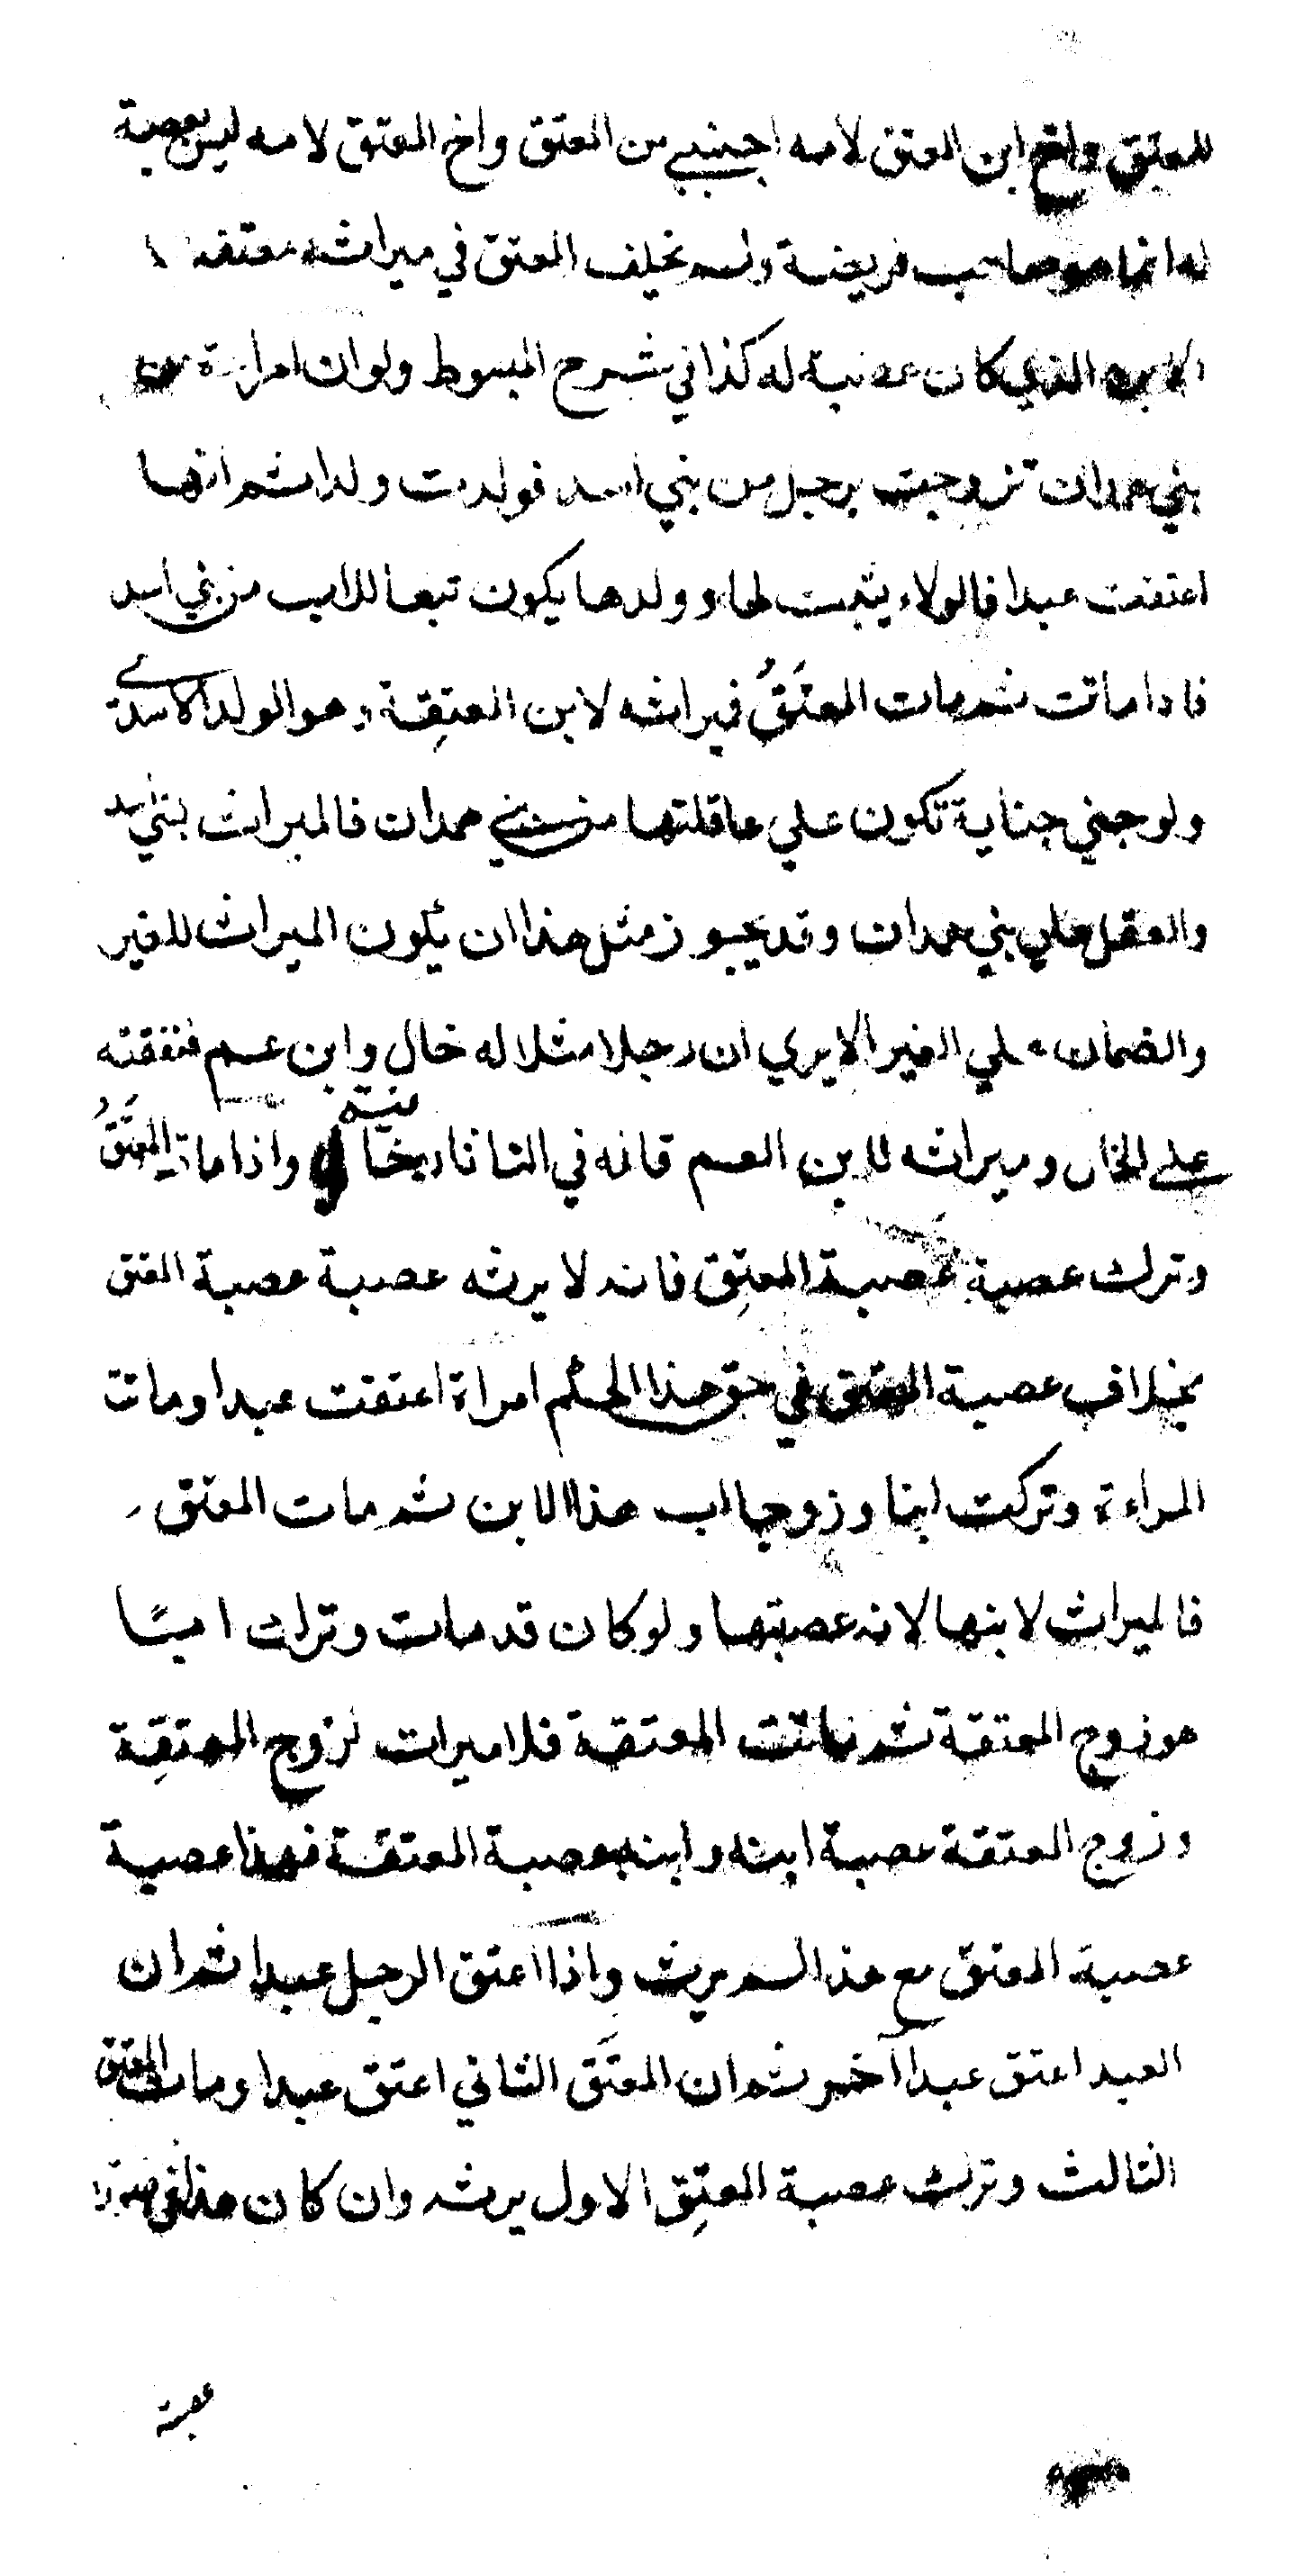 للمعتق واخ ابن المعتق لامه اجنبي من المعتق واخ المعتق لامه ليس بعصبة
له انما هو صاحب فريضة ولم يخلف المعتق في ميراث معتقه
الابن الذي كان عصبة له كذا في شرح المبسوط ولو ان امراة من
بني همدان تزوجت برجل من بني اسد فولدت ولدا ثم انها
اعتقت عبدا فالولاء يثبت لها وولدها يكون تبعا للاب من بني اسد
فاذا ماتت ثم مات المعتَقُ فميراثه لابن المعتِقة وهو الولد الاسدي
ولو جني جناية تكون علي عاقلتها من بني همدان فالميراث لبني اسد
والعقل علي بني همدان وقد يجوز مثل هذا ان يكون الميراث للغير
والضمان علي الغير الا يري ان رجلا مثلا له خال وابن عم فنفقته
علي الخال وميراثه لابن العم قاله في التاتارخا نية واذا مات المعتَقُ
وترك عصبة عَصبة المعتِق فانه لا يرثه عصبة عصبة المعتق
بخلاف عصبة المعتق في حق هذا الحكم امراة اعتقت عبدا وماتت
المراءة وتركت ابنا وزوجا اب هذا الابن ثم مات المعتق
فالميراث لابنها لانه عصبتها ولو كان قد مات وترك
هو زوج المعتقة ثم ماتت المعتقة فلا ميراث لزوج المعتِقة
وزوج المعتقة عصبة ابنه وابنه عصبة المعتقة فهذا عصبة
عصبة المعتق مع هذا لم يرث واذا اعتق الرجل عبدا ثم ان
العبد اعتق عبدا آخر ثم ان المعتَق الثاني اعتق عبدا ومات المعتق
الثالث وترك عصبة المعتِق الاول يرثه وان كان هذا في صورة
عصبة